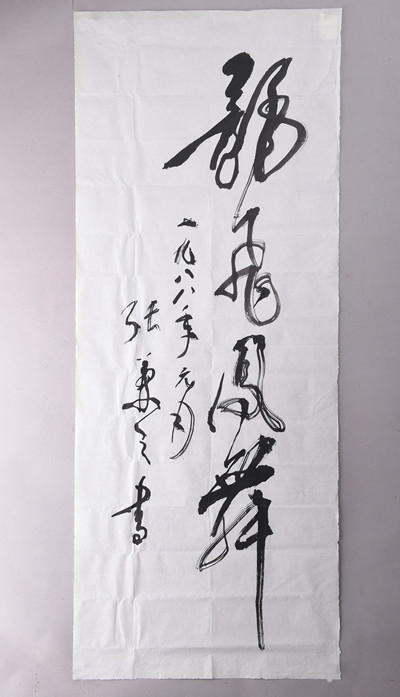 龍飛鳳舞
一九八八年元月
张兼令書